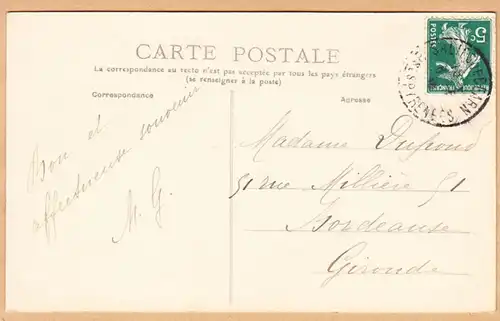 CARTE POSTALE
La correspondance au recto n'est pas acceptée par tous les pays étrangers
(se renseigner à la poste)
Correspondance
Adresse
Bon et
affectueuse souvenir
M. G.
Madame Dupond
51 rue Millière 51
Bordeaux
Gironde
5c
POSTES